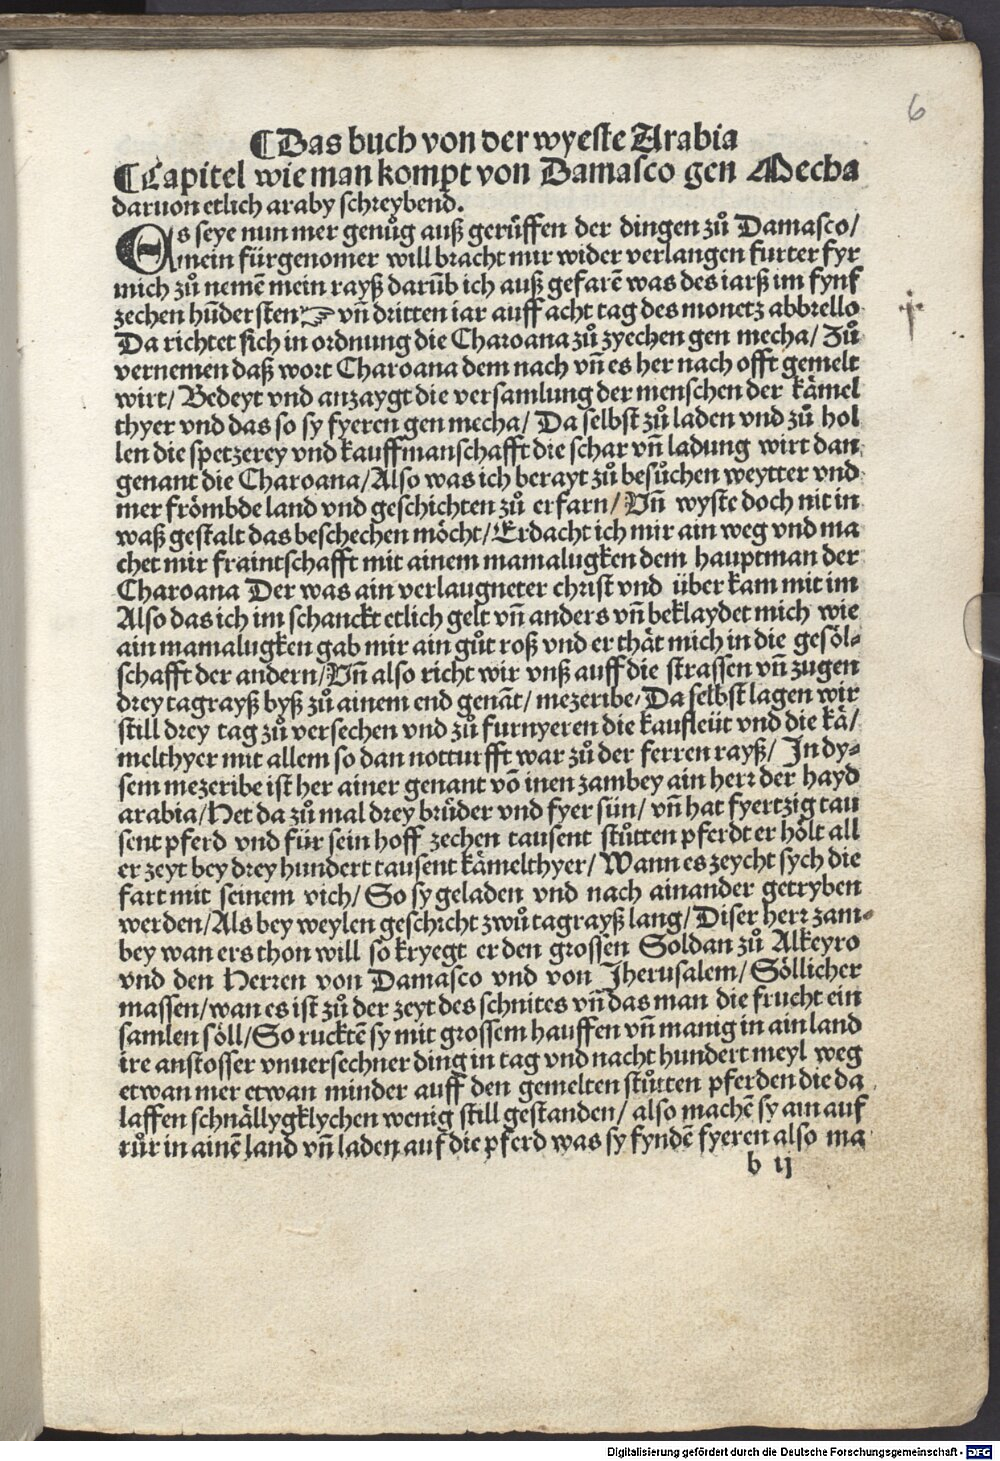 6
¶Das buch von der wyeste Arabia
¶Capitel wie man kompt von Damasco gen Mecha
daruon etlich araby schreybend.
Es seye nun mer genůg auß gerüffen der dingen zů Damasco/
mein fürgenomer will bracht mir wider verlangen furter fyr
mich zů nemē mein rayß darūb ich auß gefarē was des iarß im fynf
zechen hūdersten ☞ vn̄ dritten iar auff acht tag des monetz abbrello
Da richtet sich in ordnung die Charoana zů zyechen gen mecha/ Zů
vernemen daß wort Charoana dem nach vn̄ es her nach offt gemelt
wirt/ Bedeyt vnd anzaygt die versamlung der menschen der kämel
thyer vnd das so sy fyeren gen mecha/ Da selbst zů laden vnd zů hol
len die spetzerey vnd kauffmanschafft die schar vn̄ ladung wirt dan
genant die Charoana/Also was ich berayt zů besůchen weytter vnd
mer frömbde land vnd geschichten zů erfarn/ Vn̄ wyste doch nit in
waß gestalt das beschechen möcht/Erdacht ich mir ain weg vnd ma
chet mir fraintschafft mit ainem mamalugken dem hauptman der
Charoana Der was ain verlaugneter christ vnd über kam mit im
Also das ich im schanckt etlich gelt vn̄ anders vn̄ beklaydet mich wie
ain mamalugken gab mir ain gůt roß vnd er thät mich in die gesöl-
schafft der andern/Vn̄ also richt wir vnß auff die strassen vn̄ zugen
drey tagrayß byß zů ainem end genāt/ mezeribe/Da selbst lagen wir
still drey tag zů versechen vnd zů furnyeren die kaufleüt vnd die kä/
melthyer mit allem so dan notturfft war zů der ferren rayß/ In dy-
sem mezeribe ist her ainer genant vō inen zambey ain herr der hayd
arabia/Het da zů mal drey brůder vnd fyer sün/ vn̄ hat fyertzig tau
sent pferd vnd für sein hoff zechen tausent stůtten pferdt er hölt all
er zeyt bey drey hundert tausent kämelthyer/ Wann es zeycht sych die
fart mit seinem vich/ So sy geladen vnd nach ainander getryben
werden/Als bey weylen geschicht zwů tagrayß lang/ Diser herr zam-
bey wan ers thon will so kryegt er den grossen Soldan zů Alkeyro
vnd den Herren von Damasco vnd von Jherusalem/ Söllicher
massen/wan es ist zů der zeyt des schnites vn̄ das man die frucht ein
samlen söll/So rucktē sy mit grossem hauffen vn̄ manig in ain land
ire anstosser vnuersechner ding in tag vnd nacht hundert meyl weg
etwan mer etwan minder auff den gemelten stůtten pferden die da
laffen schnällygklychen wenig still gestanden/ also machē sy ain auf
růr in ainē land vn̄ laden auf die pferd was sy fyndē fyeren also ma
b ij
Digitalisierung gefördert durch die Deutsche Forschungsgemeinschaft - DFG